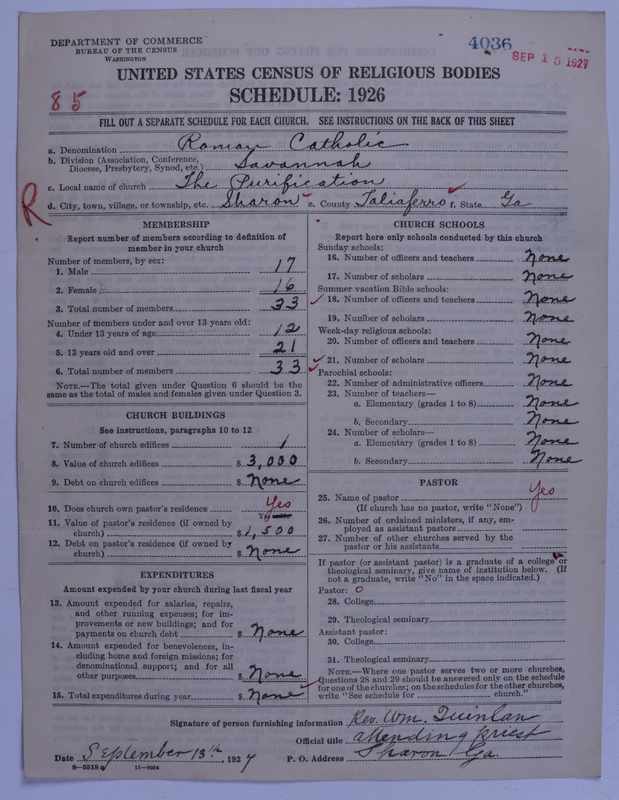 DEPARTMENT OF COMMERCE
BUREAU OF THE CENSUS
WASHINGTON
4036
SEP 15 1927
85
UNITED STATES CENSUS OF RELIGIOUS BODIES
SCHEDULE: 1926
FILL OUT A SEPARATE SCHEDULE FOR EACH CHURCH. SEE INSTRUCTIONS ON THE BACK OF THIS SHEET
a. Denomination Roman Catholic
b. Division (Association, Conference, Diocese, Presbytery, Synod, etc.) Savannah
c. Local name of church The Purification
d. City, town, village, or township, etc. Sharon e. County Taliaferro f. State Ga
R
MEMBERSHIP
Report number of members according to definition of
member in your church
Number of members, by sex:
1. Male 17
2. Female 16
3. Total number of members 33
Number of members under and over 13 years old:
4. Under 13 years of age 12
5. 13 years old and over 21
6. Total number of members 33
NOTE.—The total given under Question 6 should be the
same as the total of males and females given under Question 3.
CHURCH BUILDINGS
See instructions, paragraphs 10 to 12
7. Number of church edifices 1
8. Value of church edifices $ 3,000
9. Debt on church edifices $ None
10. Does church own pastor's residence Yes
11. Value of pastor's residence (if owned by
church) $ 1,500
12. Debt on pastor's residence (if owned by
church) $ None
EXPENDITURES
Amount expended by your church during last fiscal year
13. Amount expended for salaries, repairs,
and other running expenses; for im-
provements or new buildings; and for
payments on church debt $ None
14. Amount expended for benevolences, in-
cluding home and foreign missions; for
denominational support; and for all
other purposes $ None
15. Total expenditures during year $ None
CHURCH SCHOOLS
Report here only schools conducted by this church
Sunday schools:
16. Number of officers and teachers None
17. Number of scholars None
Summer vacation Bible schools:
18. Number of officers and teachers None
19. Number of scholars None
Week-day religious schools:
20. Number of officers and teachers None
21. Number of scholars None
Parochial schools:
22. Number of administrative officers None
23. Number of teachers—
a. Elementary (grades 1 to 8) None
b. Secondary None
24. Number of scholars—
a. Elementary (grades 1 to 8) None
b. Secondary None
PASTOR
25. Name of pastor Yes
(If church has no pastor, write "None")
26. Number of ordained ministers, if any, em-
ployed as assistant pastors
27. Number of other churches served by the
pastor or his assistants
If pastor (or assistant pastor) is a graduate of a college or
theological seminary, give name of institution below. (If
not a graduate, write "No" in the space indicated.)
Pastor: O
28. College
29. Theological seminary
Assistant pastor:
30. College
31. Theological seminary
NOTE.—Where one pastor serves two or more churches,
Questions 28 and 29 should be answered only on the schedule
for one of the churches; on the schedules for the other churches,
write "See schedule for church."
Signature of person furnishing information Rev. Wm. Quinlan
Official title attending priest
Date September 13th, 1927 P. O. Address Sharon Ga
8—5518 a 11—9034